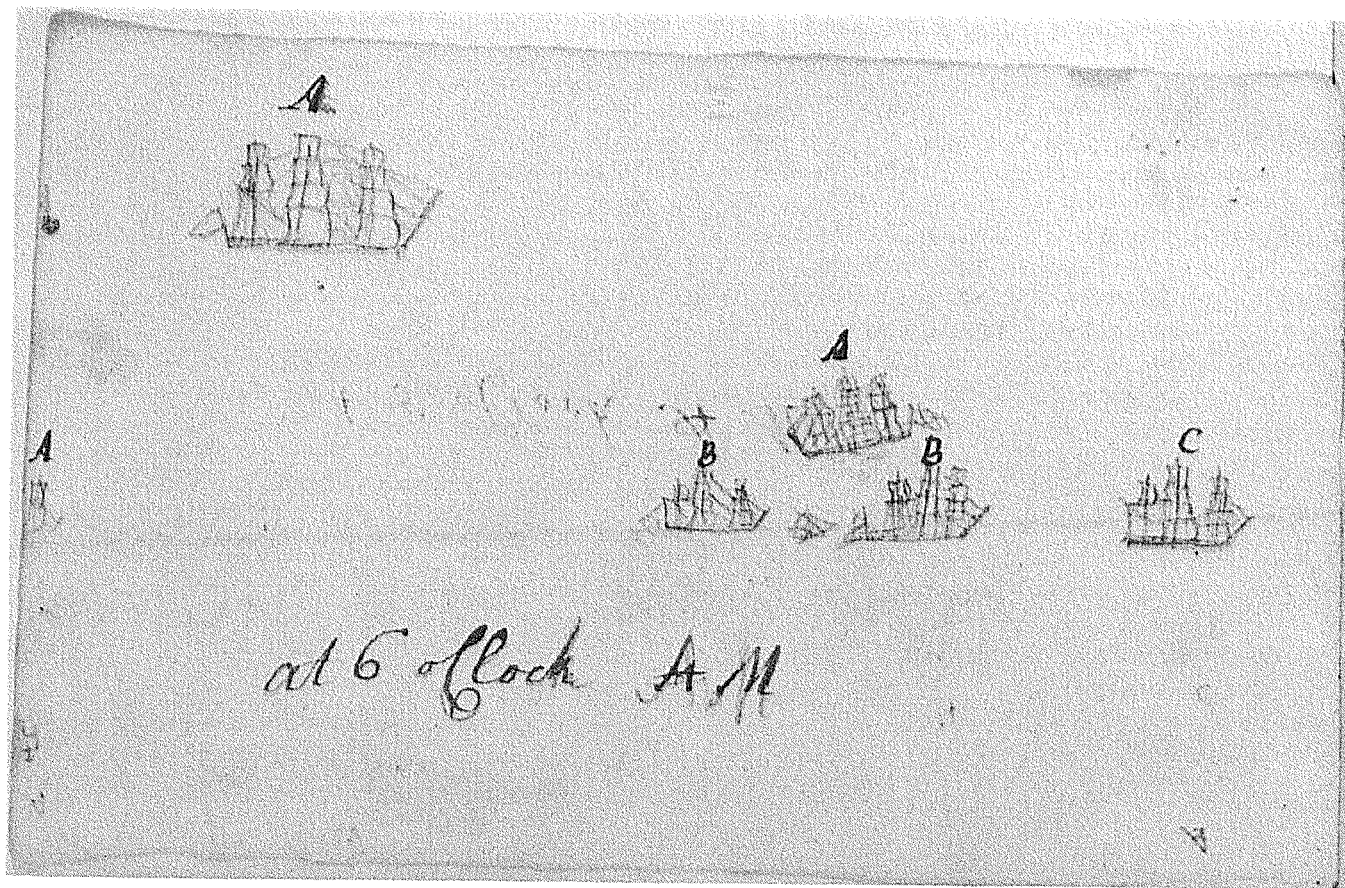 A
A
A
B
B
C
at 6 oClock A M